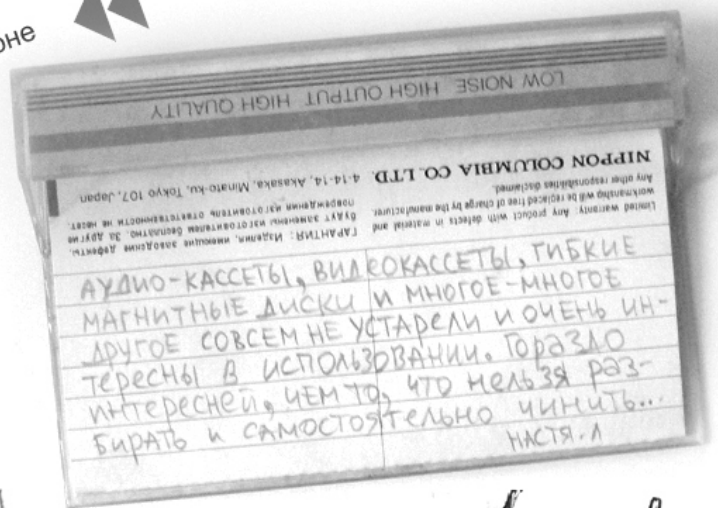 оне
LOW NOISE HIGH OUTPUT HIGH QUALITY
NIPPON COLUMBIA CO.LTD. 4-14-14, Akasaka, Minato-ku, Tokyo 107, Japan
Limited warranty: Any product with defects in material and
workmanship will be replaced free of charge by the manufacturer.
Any other responsibilities disclaimed.
ГАРАНТИЯ: Изделия, имеющие заводские дефекты,
будут заменены изготовителем бесплатно. За другие
повреждения изготовитель ответственности не несет.
АУДИО-КАССЕТЫ, ВИДЕОКАССЕТЫ, ГИБКИЕ
МАГНИТНЫЕ ДИСКИ И МНОГОЕ-МНОГОЕ
ДРУГОЕ СОВСЕМ НЕ УСТАРЕЛИ И ОЧЕНЬ ИН-
ТЕРЕСНЫ В ИСПОЛЬЗОВАНИИ. ГОРАЗДО
ИНТЕРЕСНЕЙ, ЧЕМ ТО, ЧТО НЕЛЬЗЯ РАЗ-
БИРАТЬ И САМОСТОЯТЕЛЬНО ЧИНИТЬ...
НАСТЯ.Л